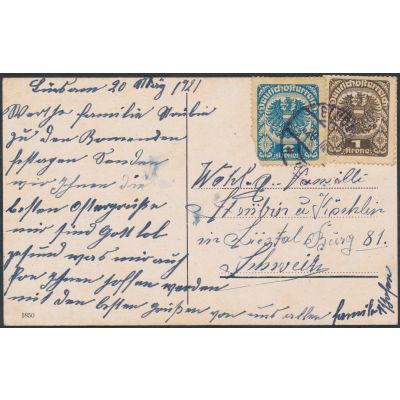 20 März 1921
Werthe familie
zu den kommenden
festagen Senden
wir Ihnen die
besten Ostergrüße
wir sind Gott lob
gesund was wir auch
von Ihnen hoffen werden
mit den besten grüßen von uns allen familie
Deutschösterreich
2
Krone
Deutschösterreich
1
Krone
Wohl.g. Familie
in Liestal Burg 81.
Schweiz
1850